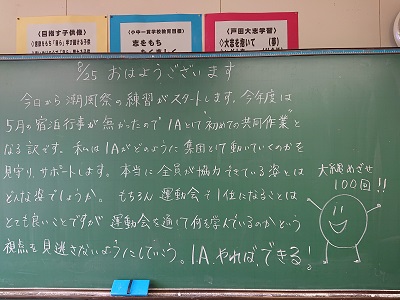 《目指す子供像》
《小中一貫学校教育目標》
志をもち
《戸田大志学習》
《大志を抱いて
8/25 おはようございます
今日から潮風祭の練習がスタートします。今年度は
5月の宿泊行事が無かったので1Aとして"初めての共同作業"と
なる訳です。私は1Aがどのように集団として動いていくのかを
見守り、サポートします。本当に全員が協力できている姿とは
どんな姿でしょうか。もちろん運動会で1位になることは
とても良いことですが運動会を通じて何を学んでいるのかという
視点を見逃さないようにしていこう。1A、やれば、できる!
大縄めざせ
100回!!